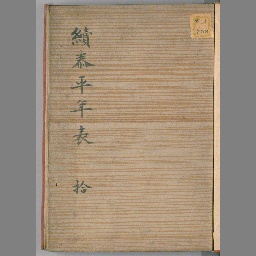 續泰平年表 拾